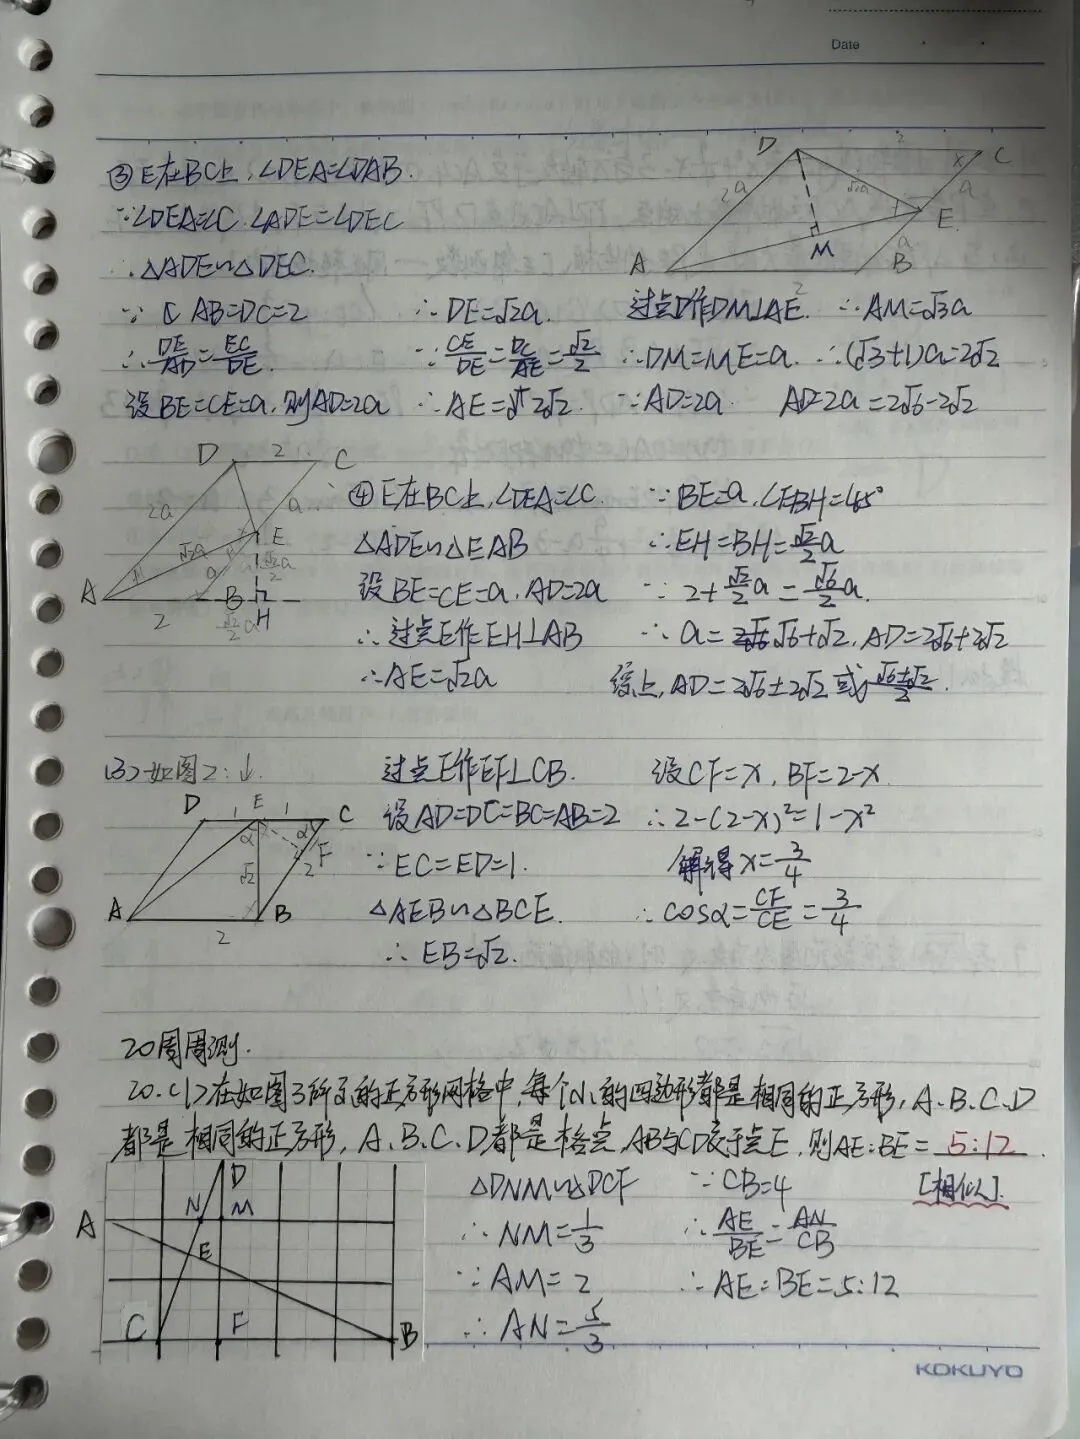 Date
③E在BC上,∠DEA=∠DAB.
∵∠DEA=∠C.∠ADE=∠DEC
∴△ADE∽△DEC.
∵ AB=DC=2 ∴DE=√2a. 过点D作DM⊥AE. ∴AM=√3a
∴DE/AD=EC/DE. ∵CE/DE=DC/AE=√2/2 ∴DM=ME=a. ∴(√3+1)a=2√2
设BE=CE=a,则AD=2a ∴AE=2√2. ∵AD=2a. AD=2a=2√6-2√2
D 2 C
2a √2a x a
E
A M a B
2
D 2 C
2a a
√2a E
a √2/2a
A B H
2 √2/2a
④E在BC上,∠DEA=∠C. ∵BE=a,∠EBH=45°
△ADE∽△EAB ∴EH=BH=√2/2a
设BE=CE=a,AD=2a ∵2+√2/2a=√6/2a.
∴过点E作EH⊥AB ∴a=√6+√2,AD=2√6+2√2
∴AE=√2a 综上,AD=2√6±2√2或
(3)如图2:↓. 过点E作EF⊥CB. 设CF=x,BF=2-x.
设AD=DC=BC=AB=2 ∴2-(2-x)²=1-x²
∵EC=ED=1. 解得x=3/4
△AEB∽△BCE. ∴cosα=CF/CE=3/4
∴EB=√2.
D 1 E 1 C
α α
√2 2 F
A B
2
20周周测.
20.(1)在如图3所示的正方形网格中,每个小的四边形都是相同的正方形,A.B.C.D
都是相同的正方形,A.B.C.D都是格点,AB与CD交于点E,则AE:BE=5:12.
△DNM∽△DCF ∵CB=4 [相似].
∴NM=1/3 ∴AE/BE=AN/CB
∵AM=2 ∴AE:BE=5:12
∴AN=5/3
D
A N M
E
C F B
KOKUYO